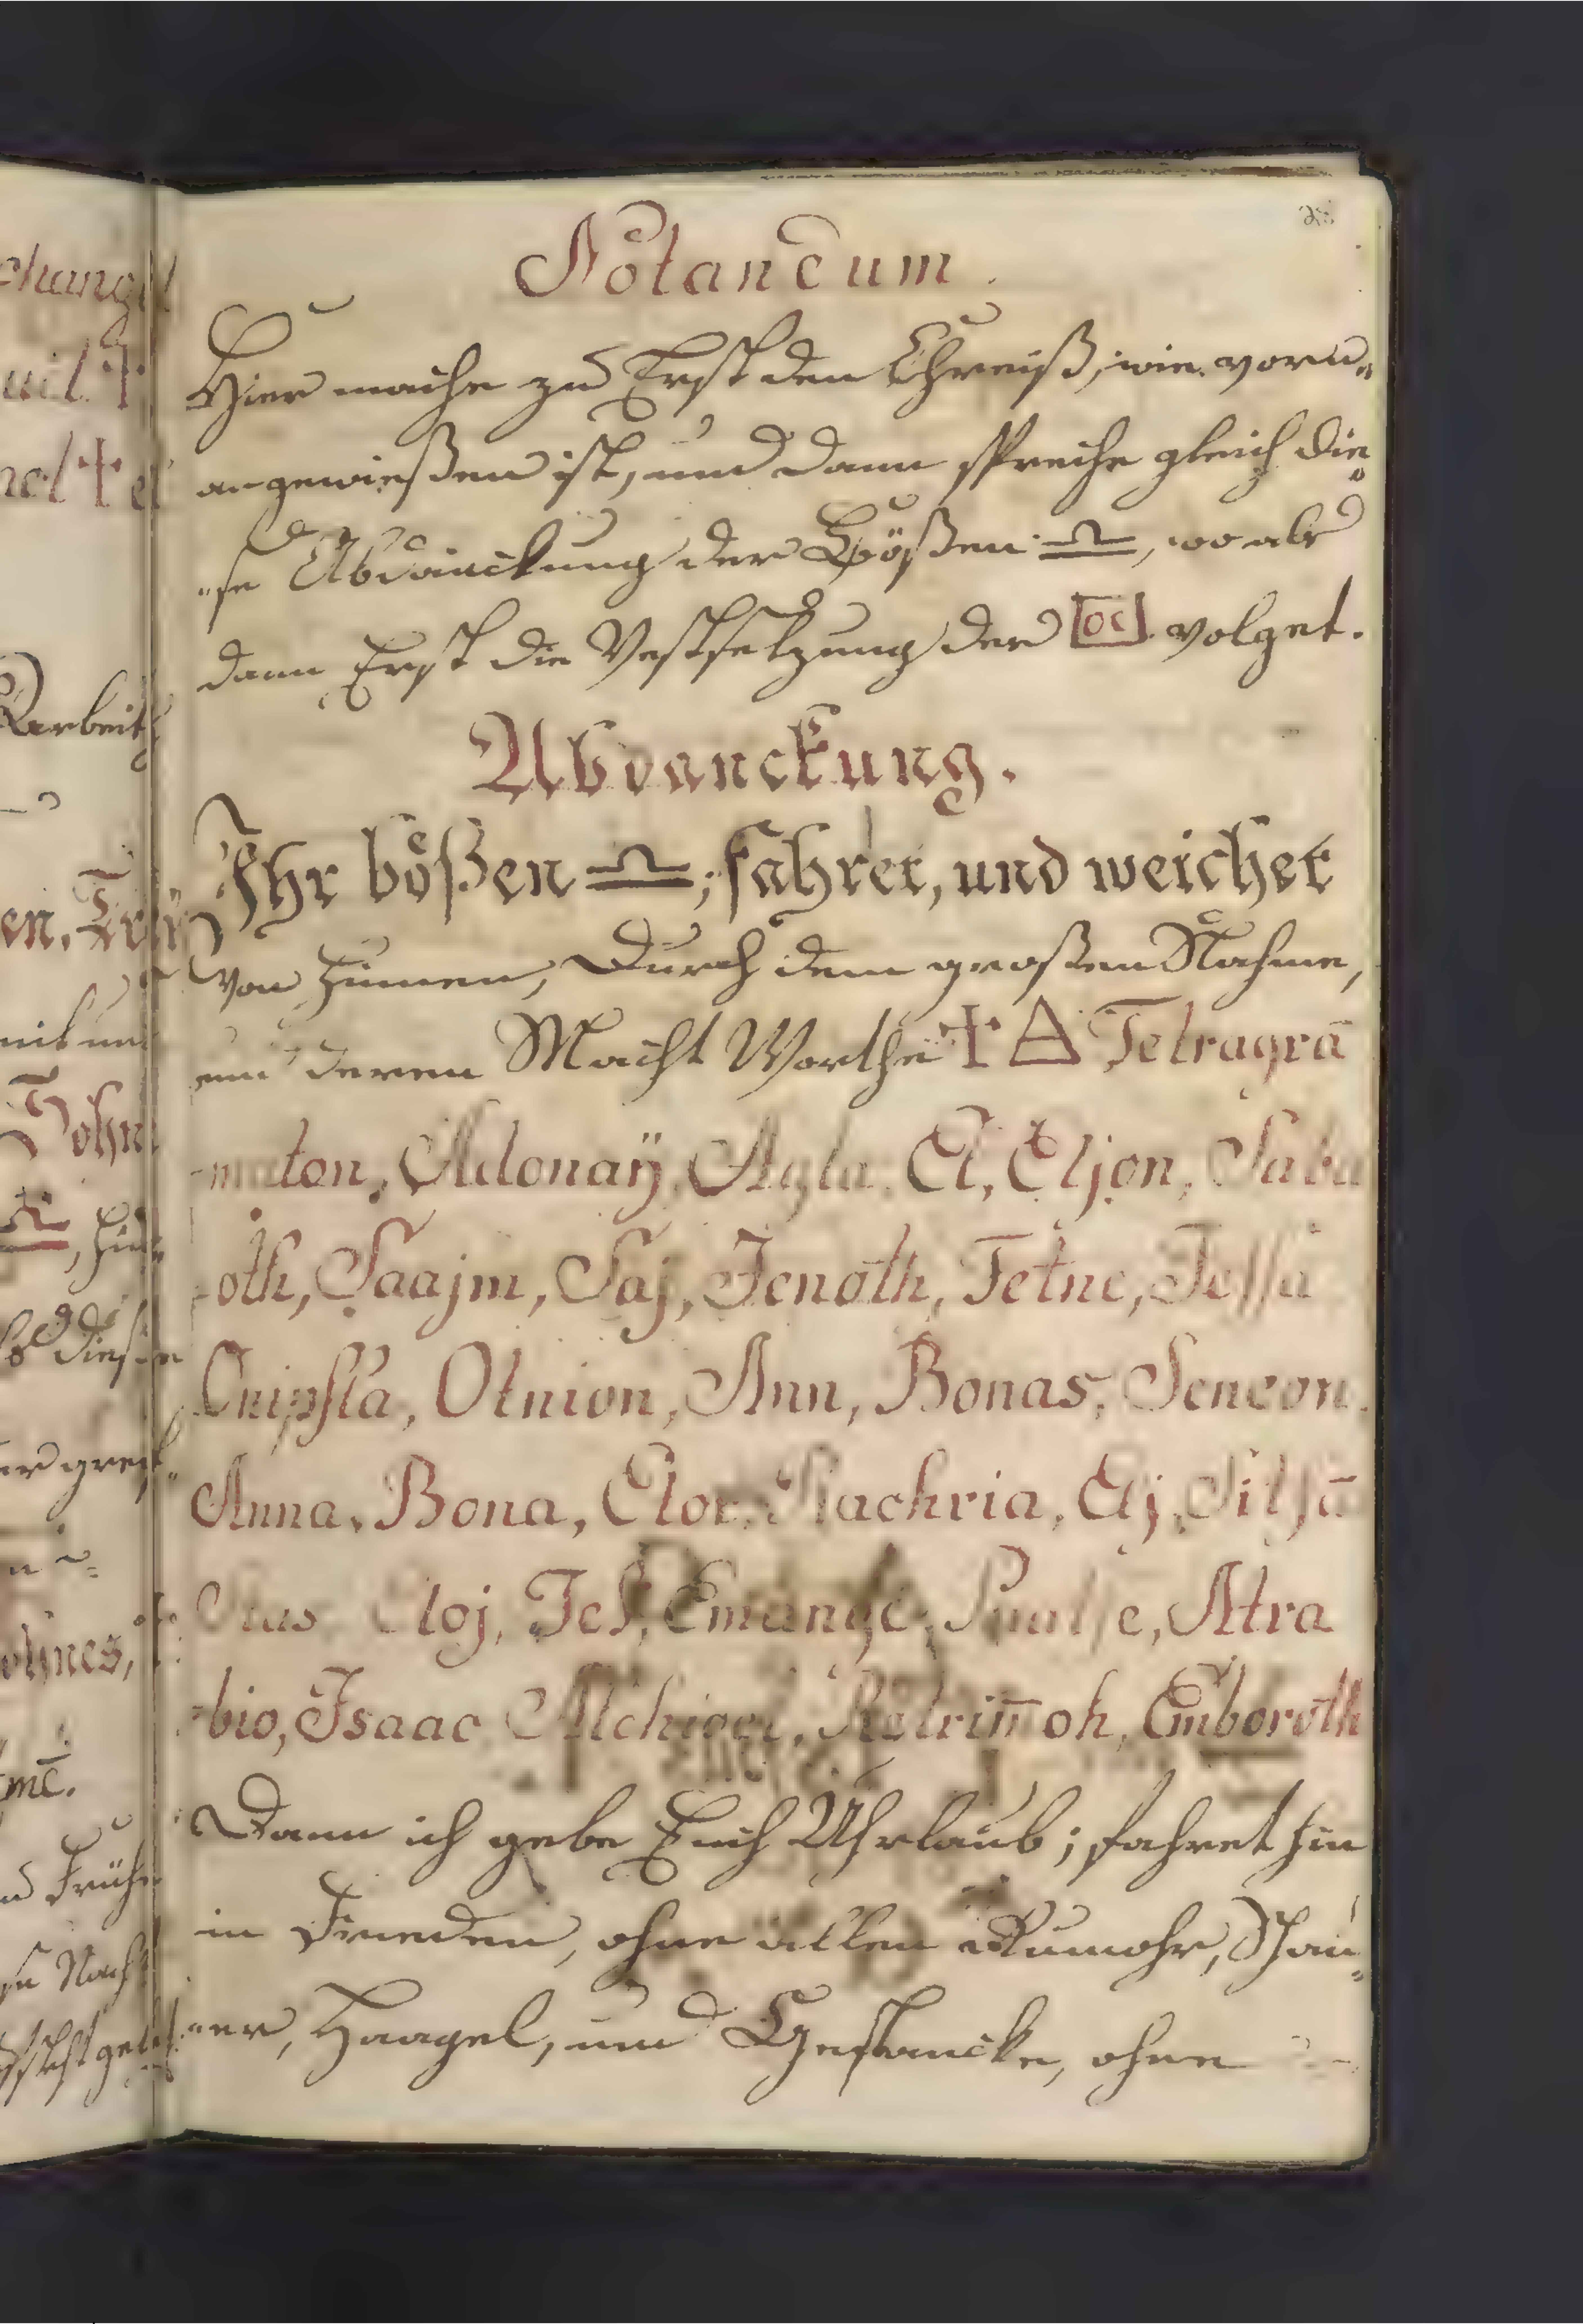 Notandum.
Hier mache zu Erst den Chreiß, wie vorn-
angewießen ist, und dann spreche gleich die-
-se Abdanckung der Bößen ♎, wo als
dann Erst die Vestsetzung der volget.
Abdanckung.
Ihr bößen ♎; fahret, und weichet
von hinnen, Durch dem großen Nahme,
und deren Macht Worthe ✝ △ Tetragrā
-maton, Adonaÿ, Agla, El, Eljon, Saba
-oth, Saajm, Saj, Jenoth, Tetne,
Onipsta, Otnion, Ann, Bonas, Seneon.
Anna, Bona, Elor, Rachria, Elj,
Eloj, Atra
-bio, Isaac Emboroth
Dann ich gebe Euch Uhrlaub; fahret hin
in Frieden, ohne allen Rumohr, Schau-
-er, Haagel, und Gestancke, ohne